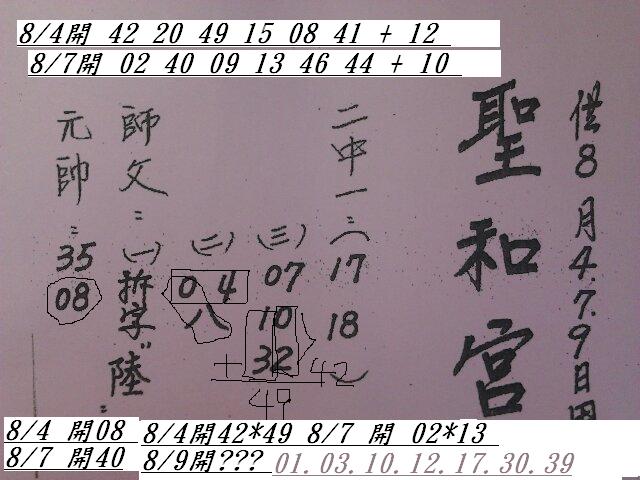 8/4開 42 20 49 15 08 41 + 12
8/7開 02 40 09 13 46 44 + 10
供8月4.7.9日用
聖和宮
二中一:(17 18)
(三) 07 10 32
(二) 04 八
師文:(一)拆字"陸"
元帥:35 08
+
49
42
8/4 開08
8/7 開40
8/4開42*49 8/7 開 02*13
8/9開???
01.03.10.12.17.30.39